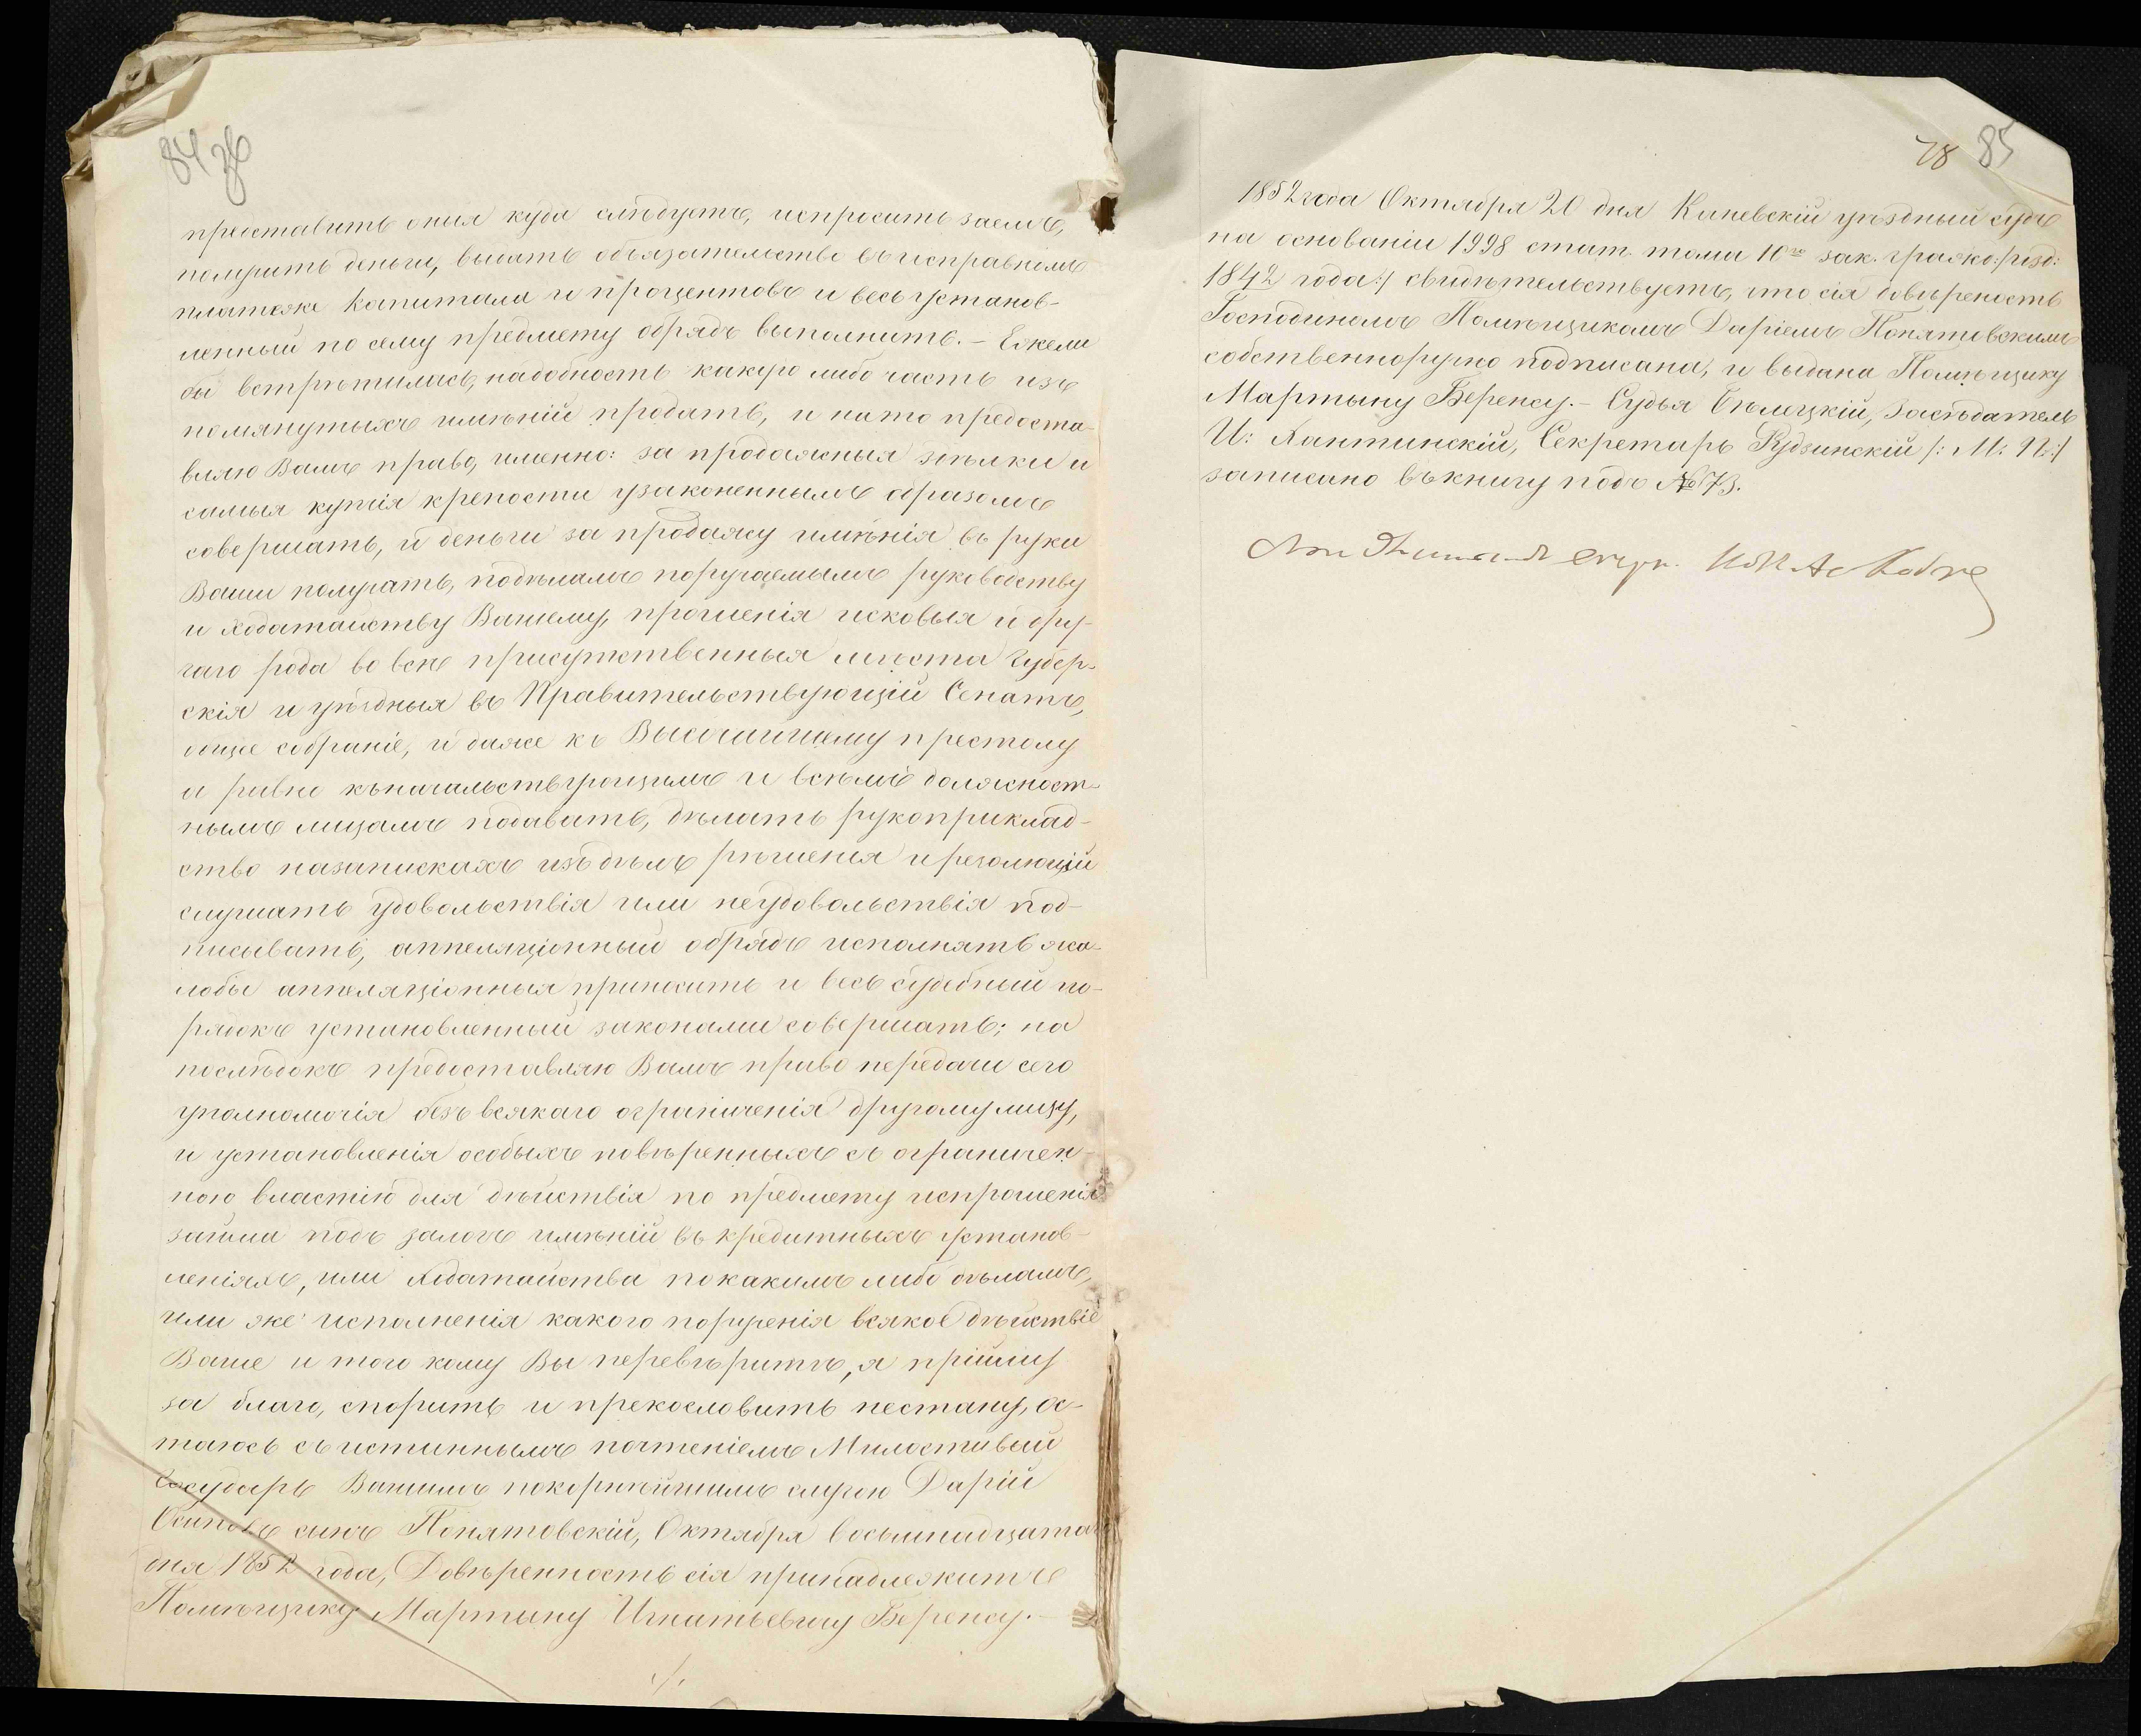 84 зв
представить оныя куда слѣдуетъ, испросить заемъ,
получить деньги, выдать обязательство въ исправномъ
платежѣ капитала и процентовъ и весь установ-
ленный по сему предмету обрядъ выполнить. – Ежели
бы встрѣтилась, надобность какую либо часть изъ
помянутыхъ имѣній продать, и на то предоста-
вляю Вамъ право, именно: за продажныя здѣлки и
самыя купчія крепости узаконеннымъ образомъ
совершать, и деньги за продажу имѣнія въ руки
Ваши получать, по дѣламъ поручаемымъ руководству
и ходатайству Вашему, прошенія исковыя и дру-
гаго рода во всѣ присутственныя мѣста Губер-
скія и уѣздныя въ Правительствующій Сенатъ,
общее собраніе, и даже къ Высочайшему престолу
и равно къ начальствующимъ и всѣмъ должност-
нымъ лицамъ подавать, дѣлать рукоприклад-
ство на запискахъ изъ дѣлъ рѣшенія и резолюцій
слушать удовольствія или неудовольствія под-
писывать, аппеляціонный обрядъ исполнять жа-
лобы аппеляціонныя приносить и весь судебный по-
рядокъ установленный законами совершать; на
послѣдокъ предоставляю Вамъ право передачи сего
уполномочія безъ всякаго ограниченія другому лицу,
и установленія особыхъ повѣренныхъ съ ограничен-
ною властію для дѣйствія по предмету испрошенія
займа подъ залогъ имѣній въ кредитныхъ установ-
леніяхъ, или ходатайства по какимъ либо дѣламъ,
или же исполненія какого порученія всякое дѣйствіе
Ваше и того кому Вы перевѣрите, я прійму
за благо, спорить и прекословить нестану, ос-
таюсь съ истиннымъ почтеніемъ Милостивый
Государь Вашимъ покорнѣйшимъ слугою Дарій
Осиповъ сынъ Понятовскій, Октября Восьмнадцатаго
дня 1852 года, Довѣренность сія принадлежитъ
Помѣщику Мартыну Игнатьевичу Беренсу. –
78 85
1852 года Октября 20 дня Каневскій уѣздный судъ
на основаніи 1998 стат. тома 10го зак. гражд:/изд:
1842 года:/ свидѣтельствуетъ, что сія довѣреность
Господиномъ Помѣщикомъ Даріемъ Понятовскимъ
собственноручно подписана, и выдана Помѣщику
Мартыну Беренсу. – Судья Бѣлецкій, Засѣдатель
И: Хантинскій, Секретарь Рудзинскій /: М: П:/
записано въ книгу подъ № 73.